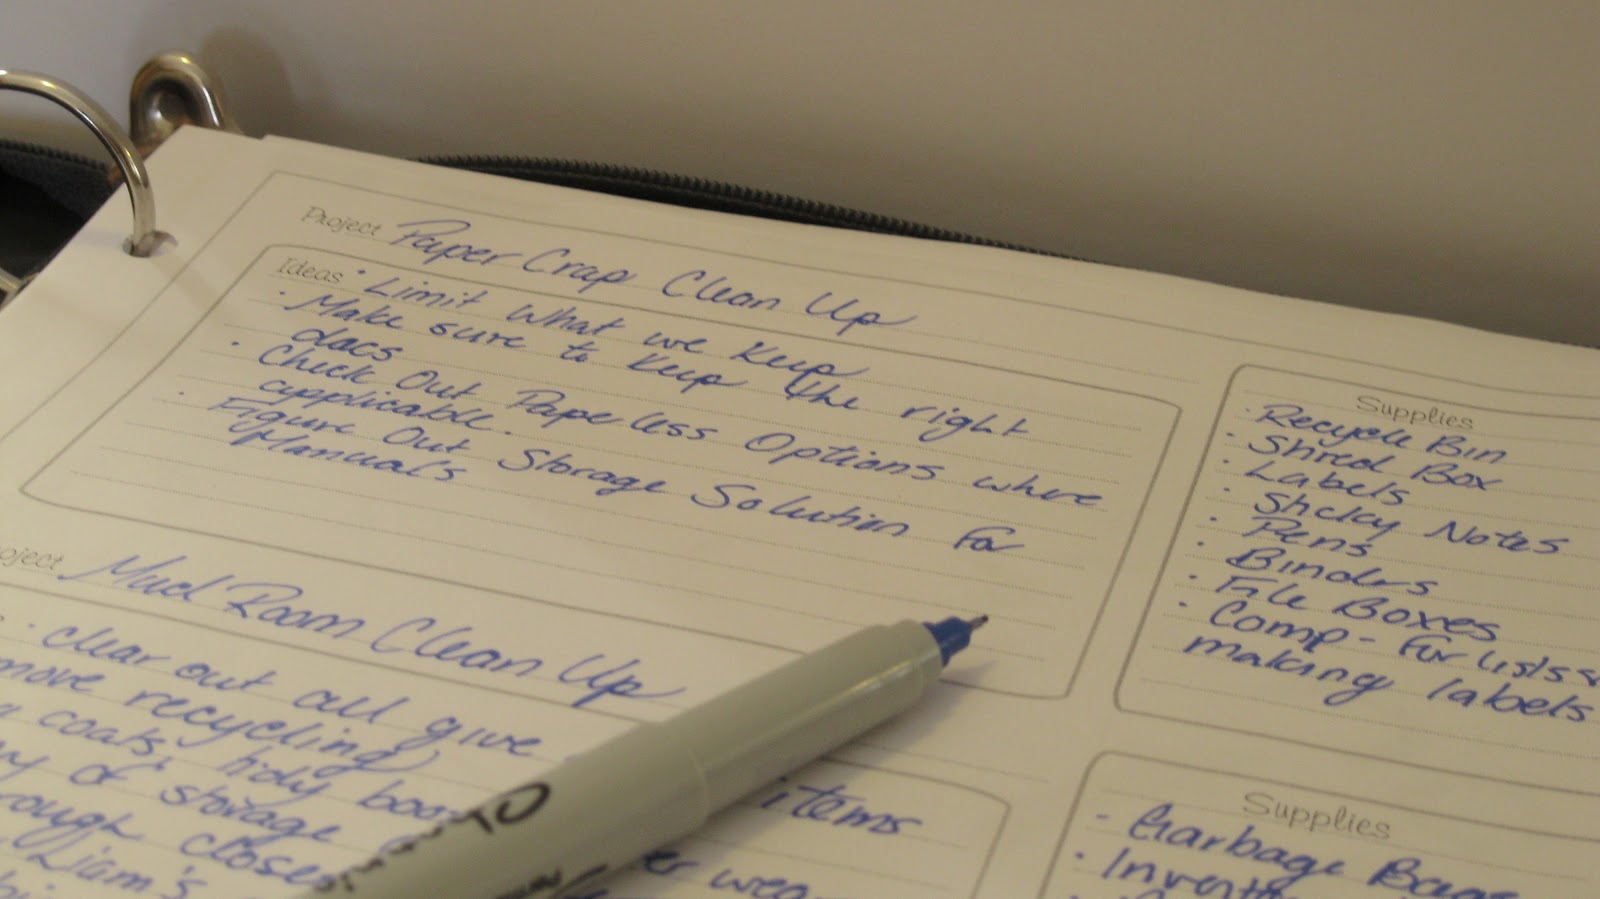 Project Paper Crap Clean Up
Ideas · Limit What we Keep
· Make sure to Keep the right
docs
· Check Out Paperless Options where
applicable.
· Figure Out Storage Solution For
Manual's
Supplies
· Recycle Bin
· Shred Box
· Labels
· Sticky Notes
· Pens
· Binders
· File Boxes
· Comp - For lists &
making labels
oject Mud Room Clean Up
· clear out all give
move recycling,
coats, tidy boo
of storage
rough close
Liam's
items
er wea
Supplies
· Garbage Bags
· Invent